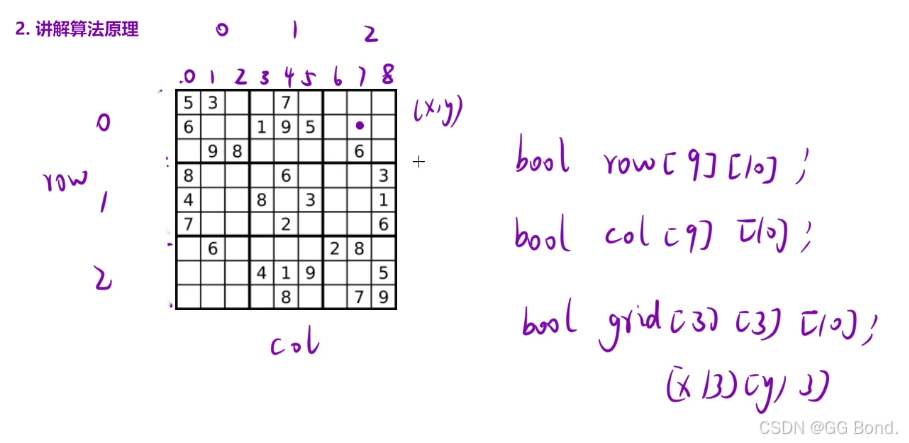 2. 讲解算法原理
0 1 2
0 1 2 3 4 5 6 7 8
5 3 7
(x,y)
0
6 1 9 5
9 8 6
bool row[9][10];
row
8 6 3
1
4 8 3 1
7 2 6
bool col[9][10];
6 2 8
2
4 1 9 5
8 7 9
bool grid[3][3][10];
col
[x/3][y/3]
CSDN @GG Bond.